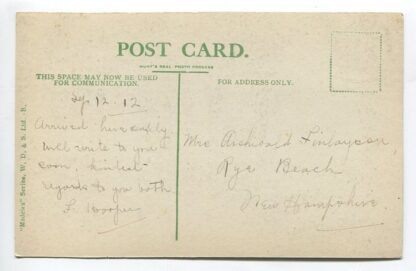 POST CARD.
HUNT'S REAL PHOTO PROCESS
THIS SPACE MAY NOW BE USED
FOR COMMUNICATION.
FOR ADDRESS ONLY.
Sep. 12. 12
Arrived here safely
Will write to you
soon, kindest
regards to you both
F. Hooper
Mrs Archibald Finlayson
Rye Beach
New Hampshire.
Series, W. D. & S. Ltd. B.